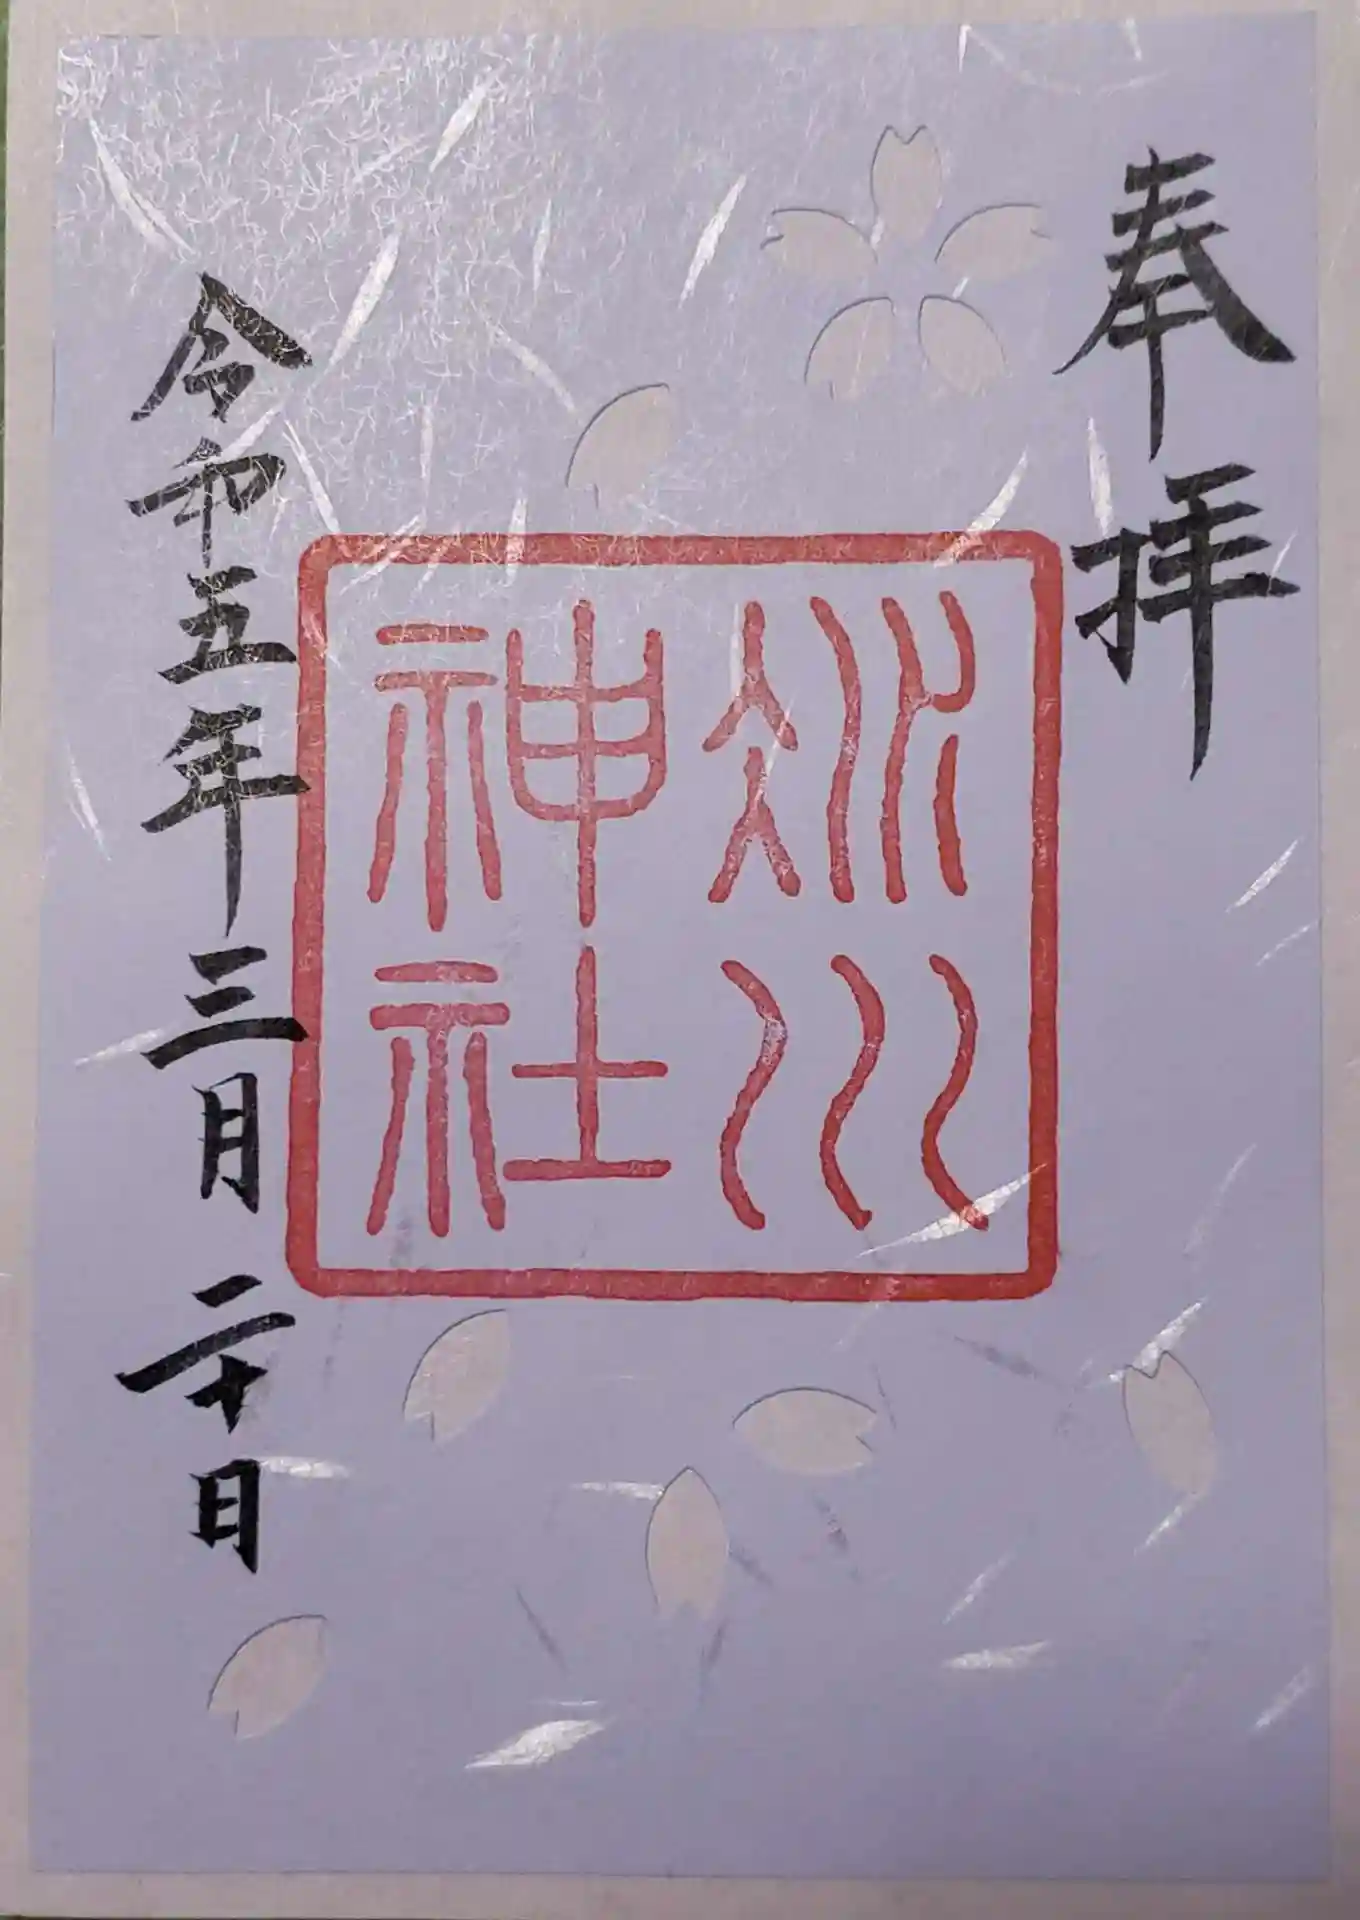 奉拝
氷川
神社
令和五年三月二十日